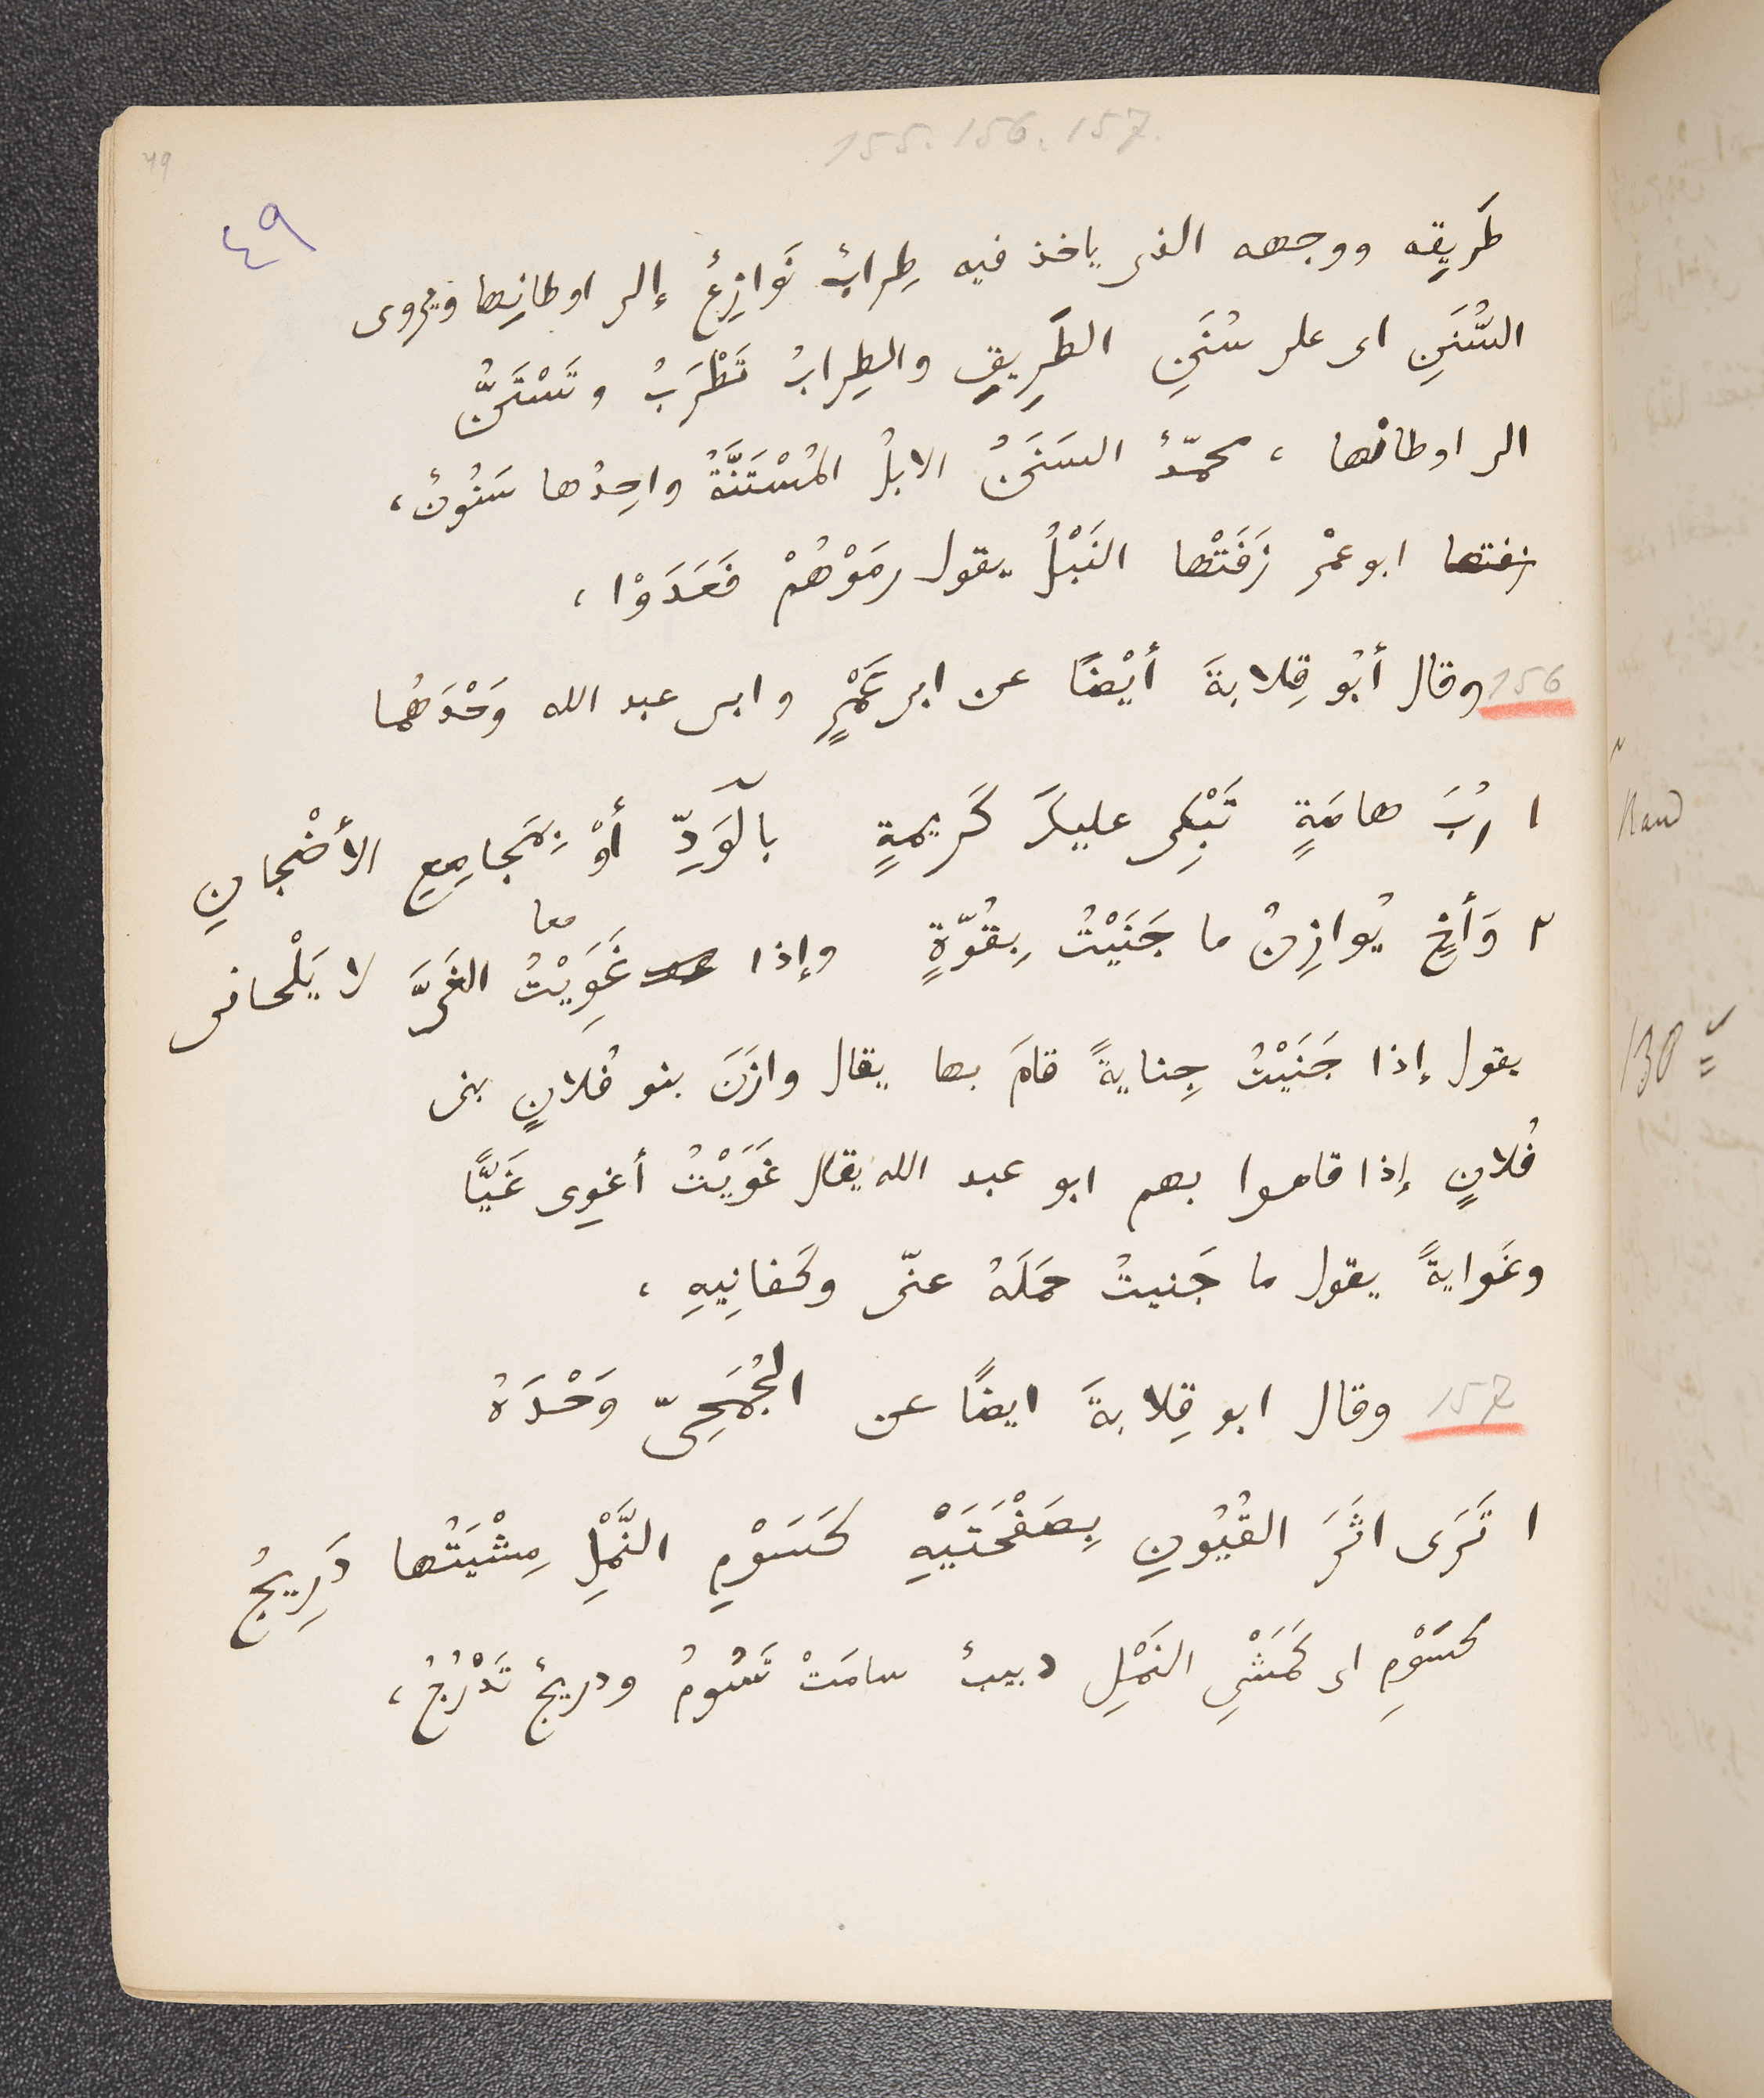 155. 156. 157.
49
٤٩
طَرِيقِه ووجهه الذى ياخذ فيه طِرابٌ نَوازِعُ إلى اوطانِها ويروى
السُّنَنِ اى على سُنَنِ الطَرِيقِ والطِرابُ تَطْرَبُ وتَسْتَنُّ
الى اوطانها ، محمّدٌ السَنَنُ الابلُ المُسْتَنَّةُ واحِدُها سَنُونٌ ،
زفتها ابو عمْرٍ زَفَتْها النَبْلُ يقول رمَوْهُمْ فَعَدَوْا ،
156 وقال أبُو قِلابةَ أيْضًا عن ابى عَمْرٍ وابى عبد الله وَحْدَهُما
١ ارُبَ هامَةٍ تَبْكِى عليكَ كَرِيمةٍ بالوَدِّ أوْ بِمَجامِعِ الأضْجانِ
٢ وَأخٍ يُوازِنُ ما جَنَيْتُ بِقُوّةٍ وإذا غَوَِيْتُ الغَىَّ لا يَلْحانى
معا
يقول إذا جَنَيْتُ جِنايةً قامَ بها يقال وازَنَ بنو فُلانٍ بنى
فُلانٍ إذا قاموا بهم ابو عبد الله يقال غَوَيْتُ أغوِى غَيًّا
وغَوايةً يقول ما جَنيتُ حَمَلَهُ عنّى وكَفانِيهِ ،
157 وقال ابو قِلابةَ ايضًا عن الجُمَحِىّ وَحْدَهُ
١ تَرَى اثَرَ القُيُونِ بِصَفْحَتَيْهِ كَسَوْمِ النَّمْلِ مِشْيَتُها دَرِيجُ
كسَوْمِ اى كَمَشْىِ النَمْلِ دبيبٌ سامَتْ تَسُومُ ودريجٌ تَدْرُجُ ،
130